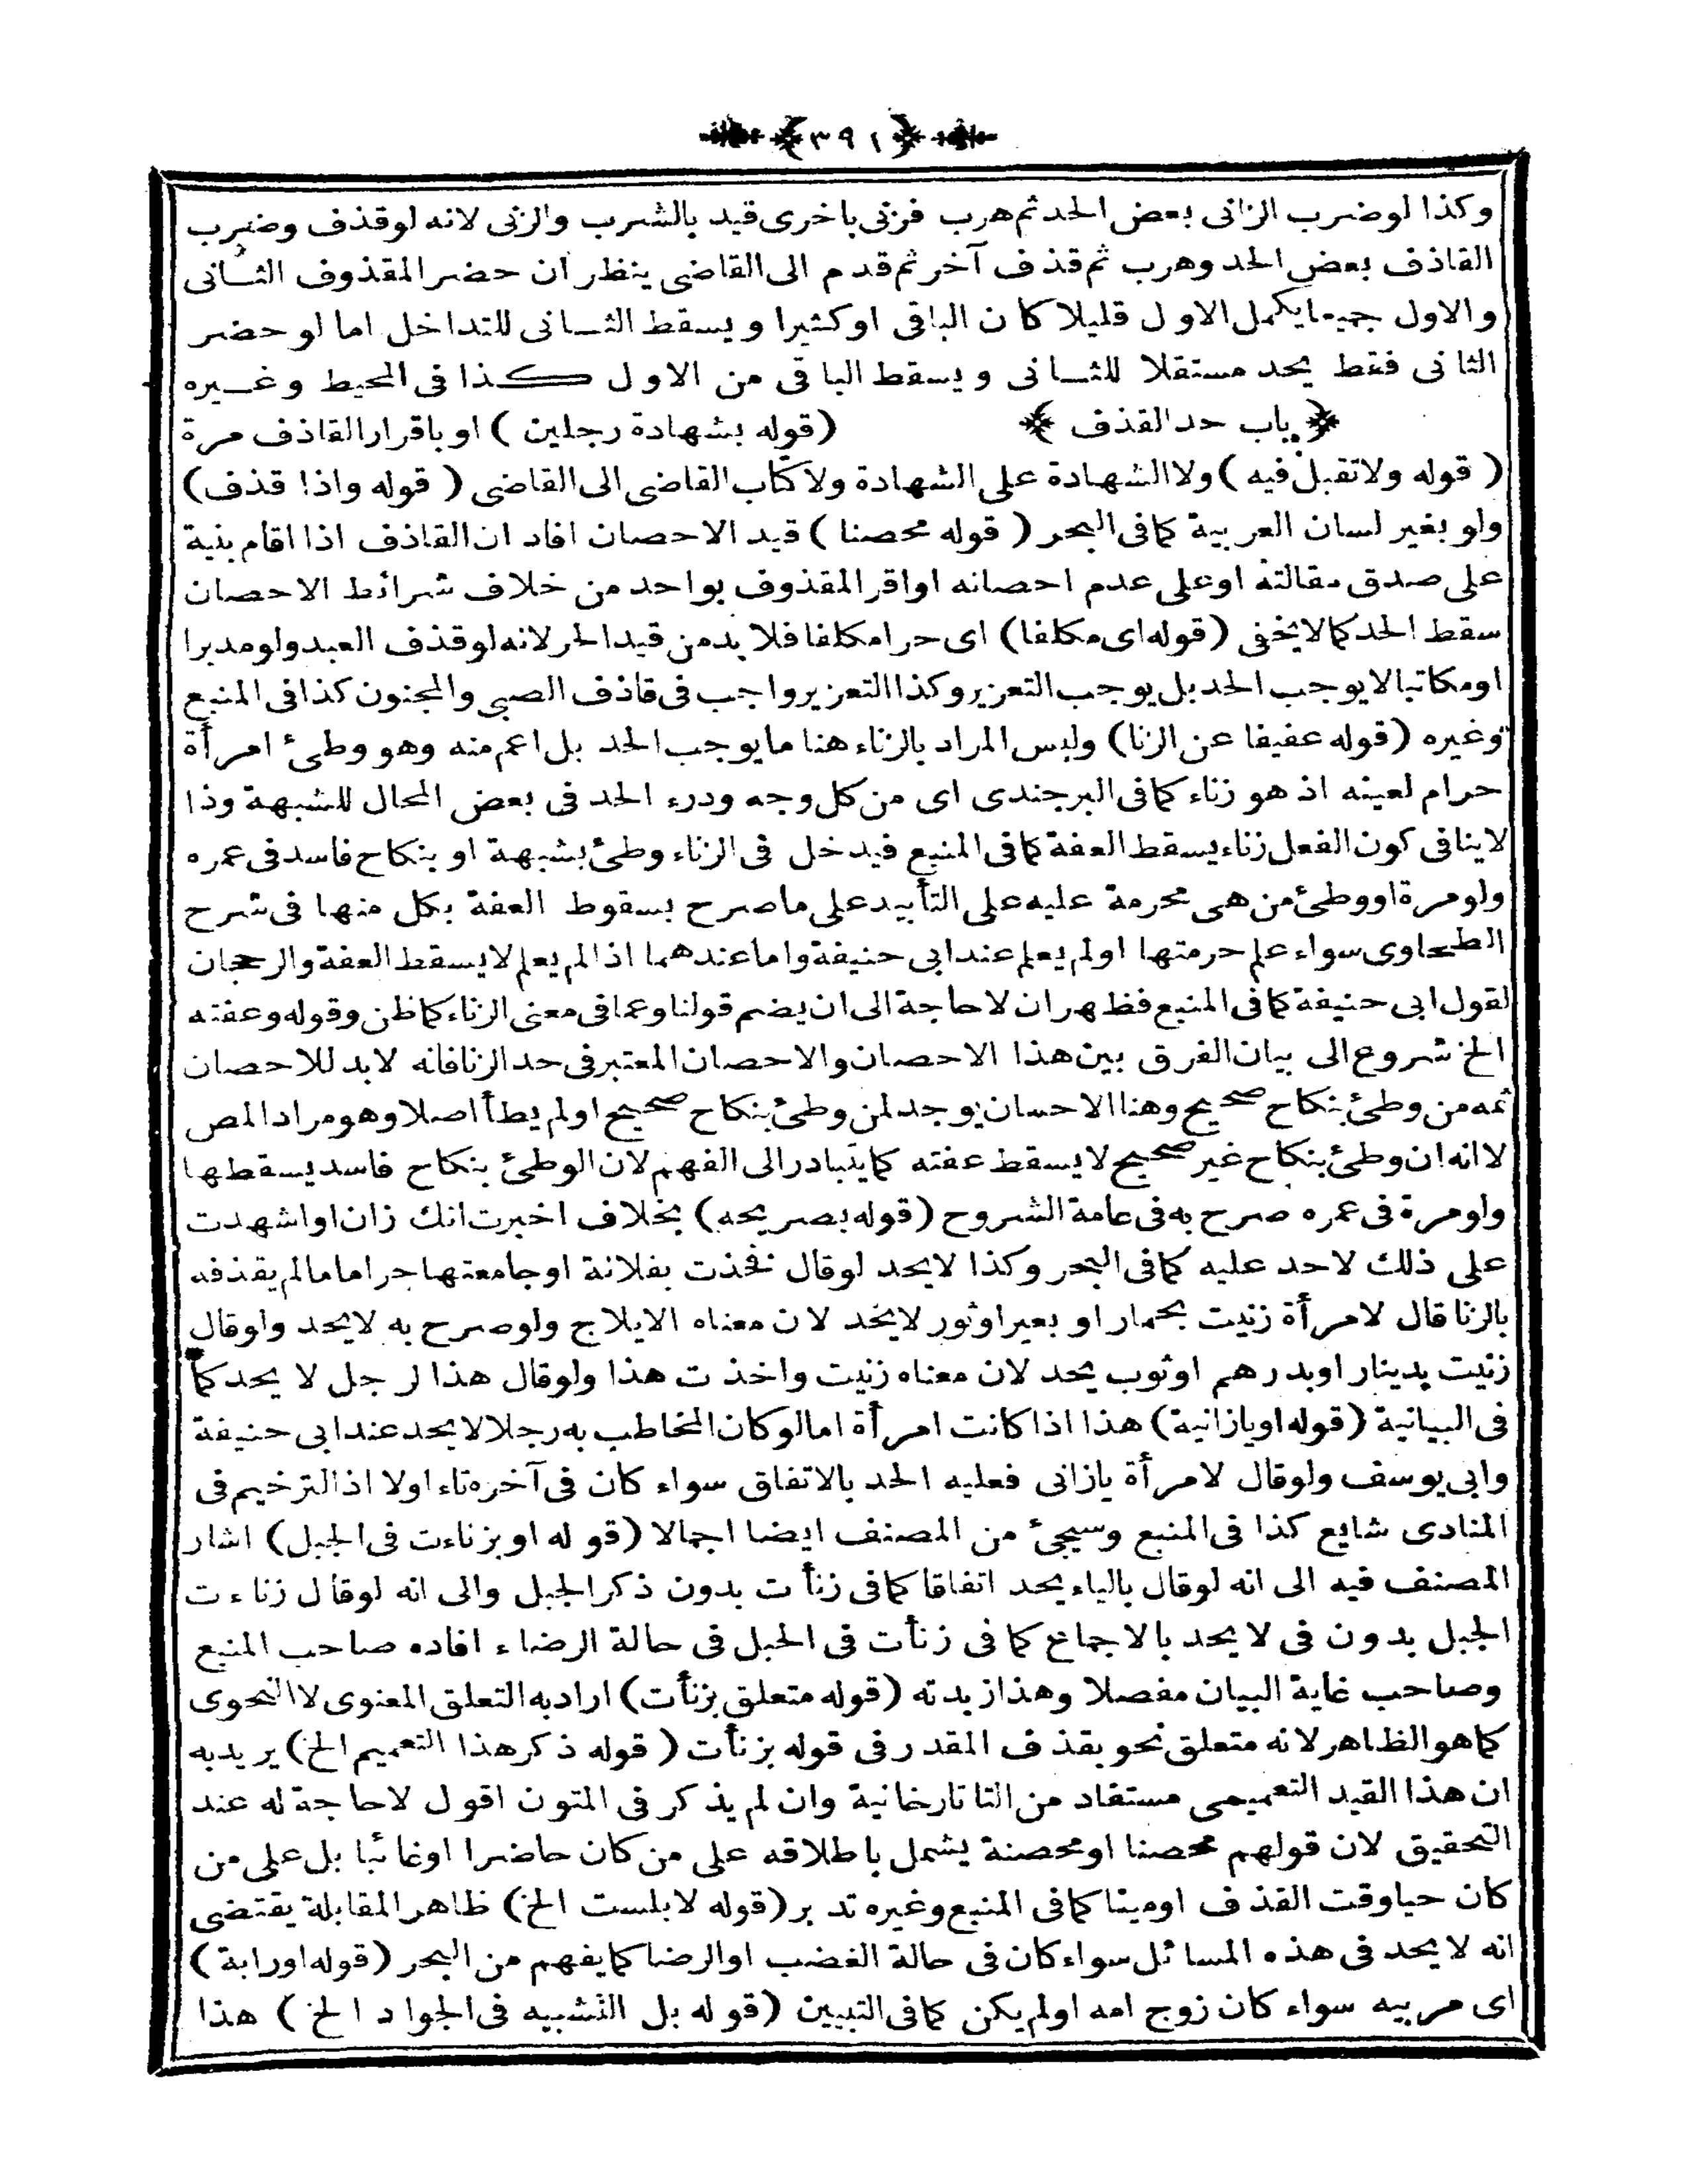 ﴿٣٩١﴾
وكذا لو ضرب الزانى بعض الحد ثم هرب فزنى باخرى قيد بالشرب والزنى لانه لو قذف وضرب
القاذف بعض الحد وهرب ثم قذف آخر ثم قدم الى القاضى ينظر ان حضر المقذوف الثانى
والاول جميعا يكمل الاول قليلا كان الباقى او كثيرا ويسقط الثانى للتداخل اما لو حضر
الثانى فقط يحد مستقلا للثانى ويسقط الباقى من الاول كذا فى المحيط وغيره
﴿ باب حد القذف ﴾ (قوله بشهادة رجلين) او باقرار القاذف مرة
(قوله ولا تقبل فيه) ولا الشهادة على الشهادة ولا كتاب القاضى الى القاضى (قوله واذا قذف)
ولو بغير لسان العربية كما فى البحر (قوله محصنا) قيد الاحصان افاد ان القاذف اذا اقام بنية
على صدق مقالته او على عدم احصانه او اقر المقذوف بواحد من خلاف شرائط الاحصان
سقط الحد كما لا يخفى (قوله اى مكلفا) اى حرا مكلفا فلا بد من قيد الحر لانه لو قذف العبد ولو مدبرا
او مكاتبا لا يوجب الحد بل يوجب التعزير وكذا التعزير واجب فى قاذف الصبى والمجنون كذا فى المنبع
وغيره (قوله عفيفا عن الزنا) وليس المراد بالزناء هنا ما يوجب الحد بل اعم منه وهو وطئ امرأة
حرام لعينه اذ هو زناء كما فى البرجندى اى من كل وجه ودرء الحد فى بعض المحال للشبهة وذا
لا ينافى كون الفعل زناء يسقط العفة كما فى المنبع فيدخل فى الزناء وطئ بشبهة او بنكاح فاسد فى عمره
ولو مرة او وطئ من هى محرمة عليه على التأبيد على ما صرح بسقوط العفة بكل منها فى شرح
الطحاوى سواء علم حرمتها او لم يعلم عند ابى حنيفة واما عندهما اذا لم يعلم لا يسقط العفة والرجحان
لقول ابى حنيفة كما فى المنبع فظهر ان لا حاجة الى ان يضم قولنا وعما فى معنى الزناء كما ظن وقوله وعفته
الخ شروع الى بيان الفرق بين هذا الاحصان والاحصان المعتبر فى حد الزنا فانه لا بد للاحصان
ثمه من وطئ بنكاح صحيح وهنا الاحسان يوجد لمن وطئ بنكاح صحيح او لم يطأ اصلا وهو مراد المص
لا انه ان وطئ بنكاح غير صحيح لا يسقط عفته كما يتبادر الى الفهم لان الوطئ بنكاح فاسد يسقطها
ولو مرة فى عمره صرح به فى عامة الشروح (قوله بصريحه) بخلاف اخبرت انك زان او اشهدت
على ذلك لا حد عليه كما فى البحر وكذا لا يحد لو قال فخذت بفلانة او جامعتها حراما ما لم يقذفه
بالزنا قال لامرأة زنيت بحمار او بعير او ثور لا يحد لان معناه الايلاج ولو صرح به لا يحد ولو قال
زنيت بدينار او بدرهم او ثوب يحد لان معناه زنيت واخذت هذا ولو قال هذا لرجل لا يحد كما
فى البيانية (قوله او يا زانية) هذا اذا كانت امرأة اما لو كان المخاطب به رجلا لا يحد عند ابى حنيفة
وابى يوسف ولو قال لامرأة يا زانى فعليه الحد بالاتفاق سواء كان فى آخره تاء اولا اذ الترخيم فى
المنادى شايع كذا فى المنبع وسيجئ من المصنف ايضا اجمالا (قوله او بزناءت فى الجبل) اشار
المصنف فيه الى انه لو قال بالياء يحد اتفاقا كما فى زنأت بدون ذكر الجبل والى انه لو قال زناءت
الجبل بدون فى لا يحد بالاجماع كما فى زنأت فى الجبل فى حالة الرضاء افاده صاحب المنبع
وصاحب غاية البيان مفصلا وهذا زبدته (قوله متعلق بزنأت) اراد به التعلق المعنوى لا النحوى
كما هو الظاهر لانه متعلق نحو بقذف المقدر فى قوله بزنأت (قوله ذكر هذا التعميم الخ) يريد به
ان هذا القيد التعميمى مستفاد من التاتارخانية وان لم يذكر فى المتون اقول لا حاجة له عند
التحقيق لان قولهم محصنا او محصنة يشمل باطلاقه على من كان حاضرا او غائبا بل على من
كان حيا وقت القذف او ميتا كما فى المنبع وغيره تدبر (قوله لا بلست الخ) ظاهر المقابلة يقتضى
انه لا يحد فى هذه المسائل سواء كان فى حالة الغضب او الرضا كما يفهم من البحر (قوله او رابة)
اى مربيه سواء كان زوج امه او لم يكن كما فى التبيين (قوله بل التشبيه فى الجواد الخ) هذا